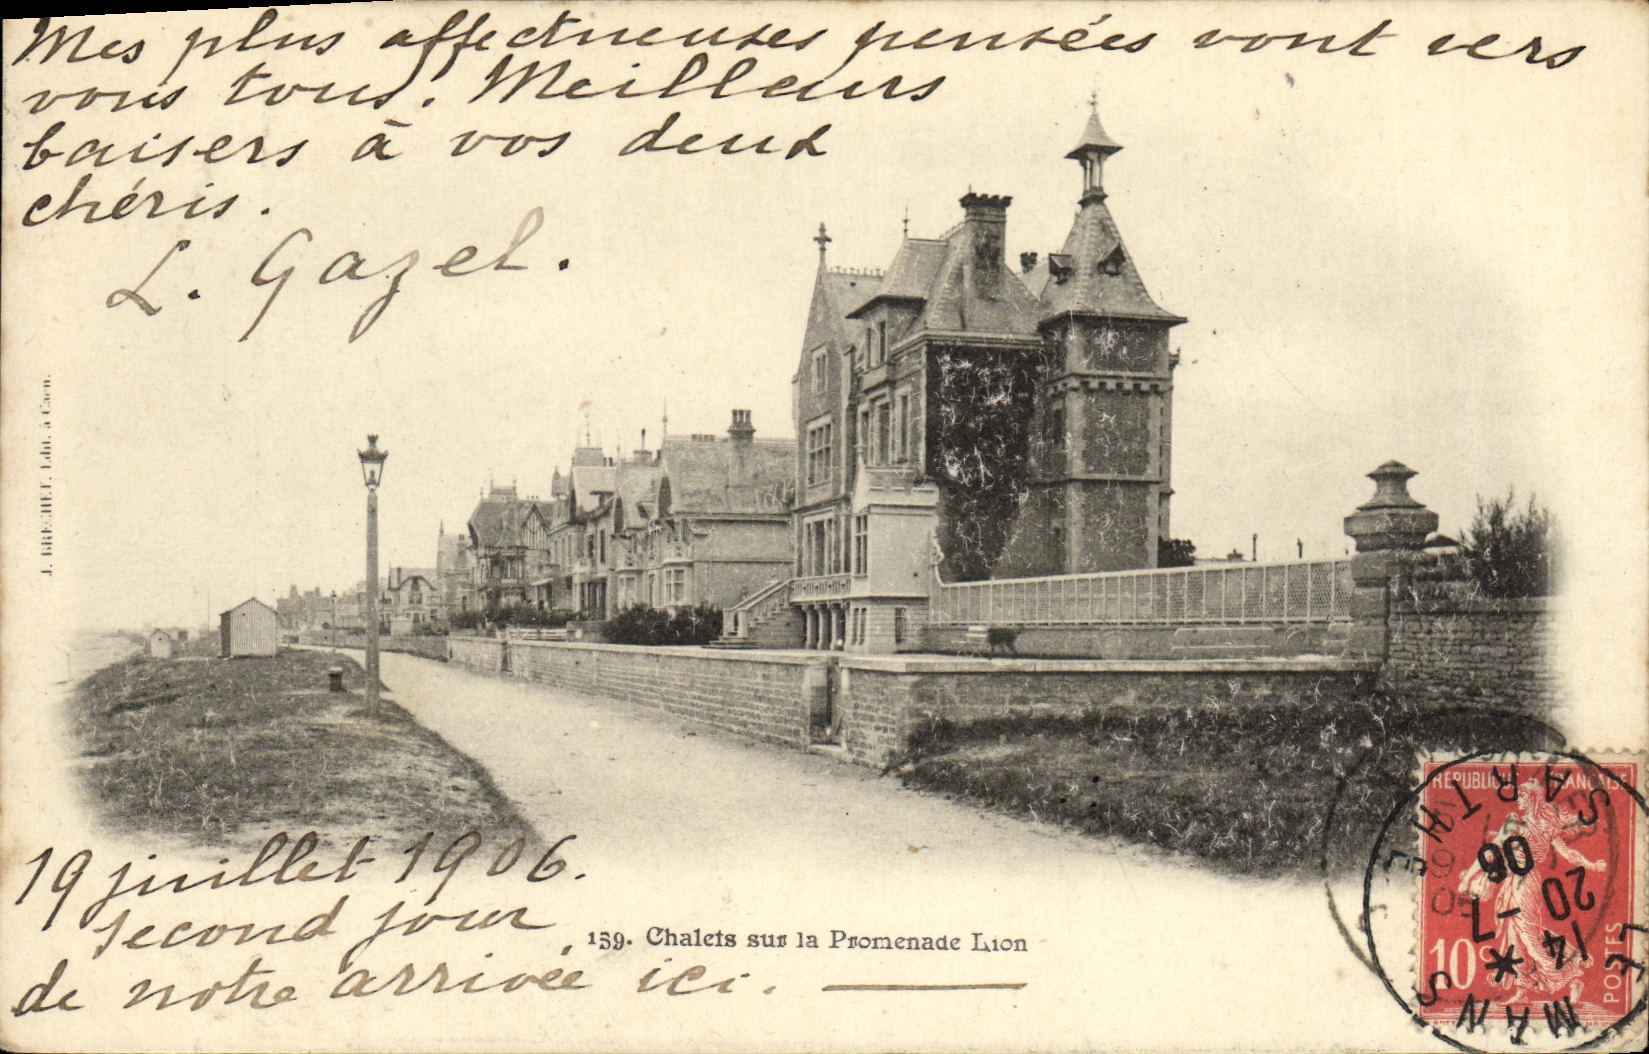 Mes plus affectueuses pensées vont vers
vous tous. Meilleurs
baisers à vos deux
chéris.
L. Gazel.
J. BRECHET, Edit. à Caen.
19 juillet 1906.
second jour
de notre arrivée ici.
159. Chalets sur la Promenade Lion
REPUBLIQUE FRANÇAISE
10c
POSTES
LE MANS
SARTHE
14 *
20 - 7
06